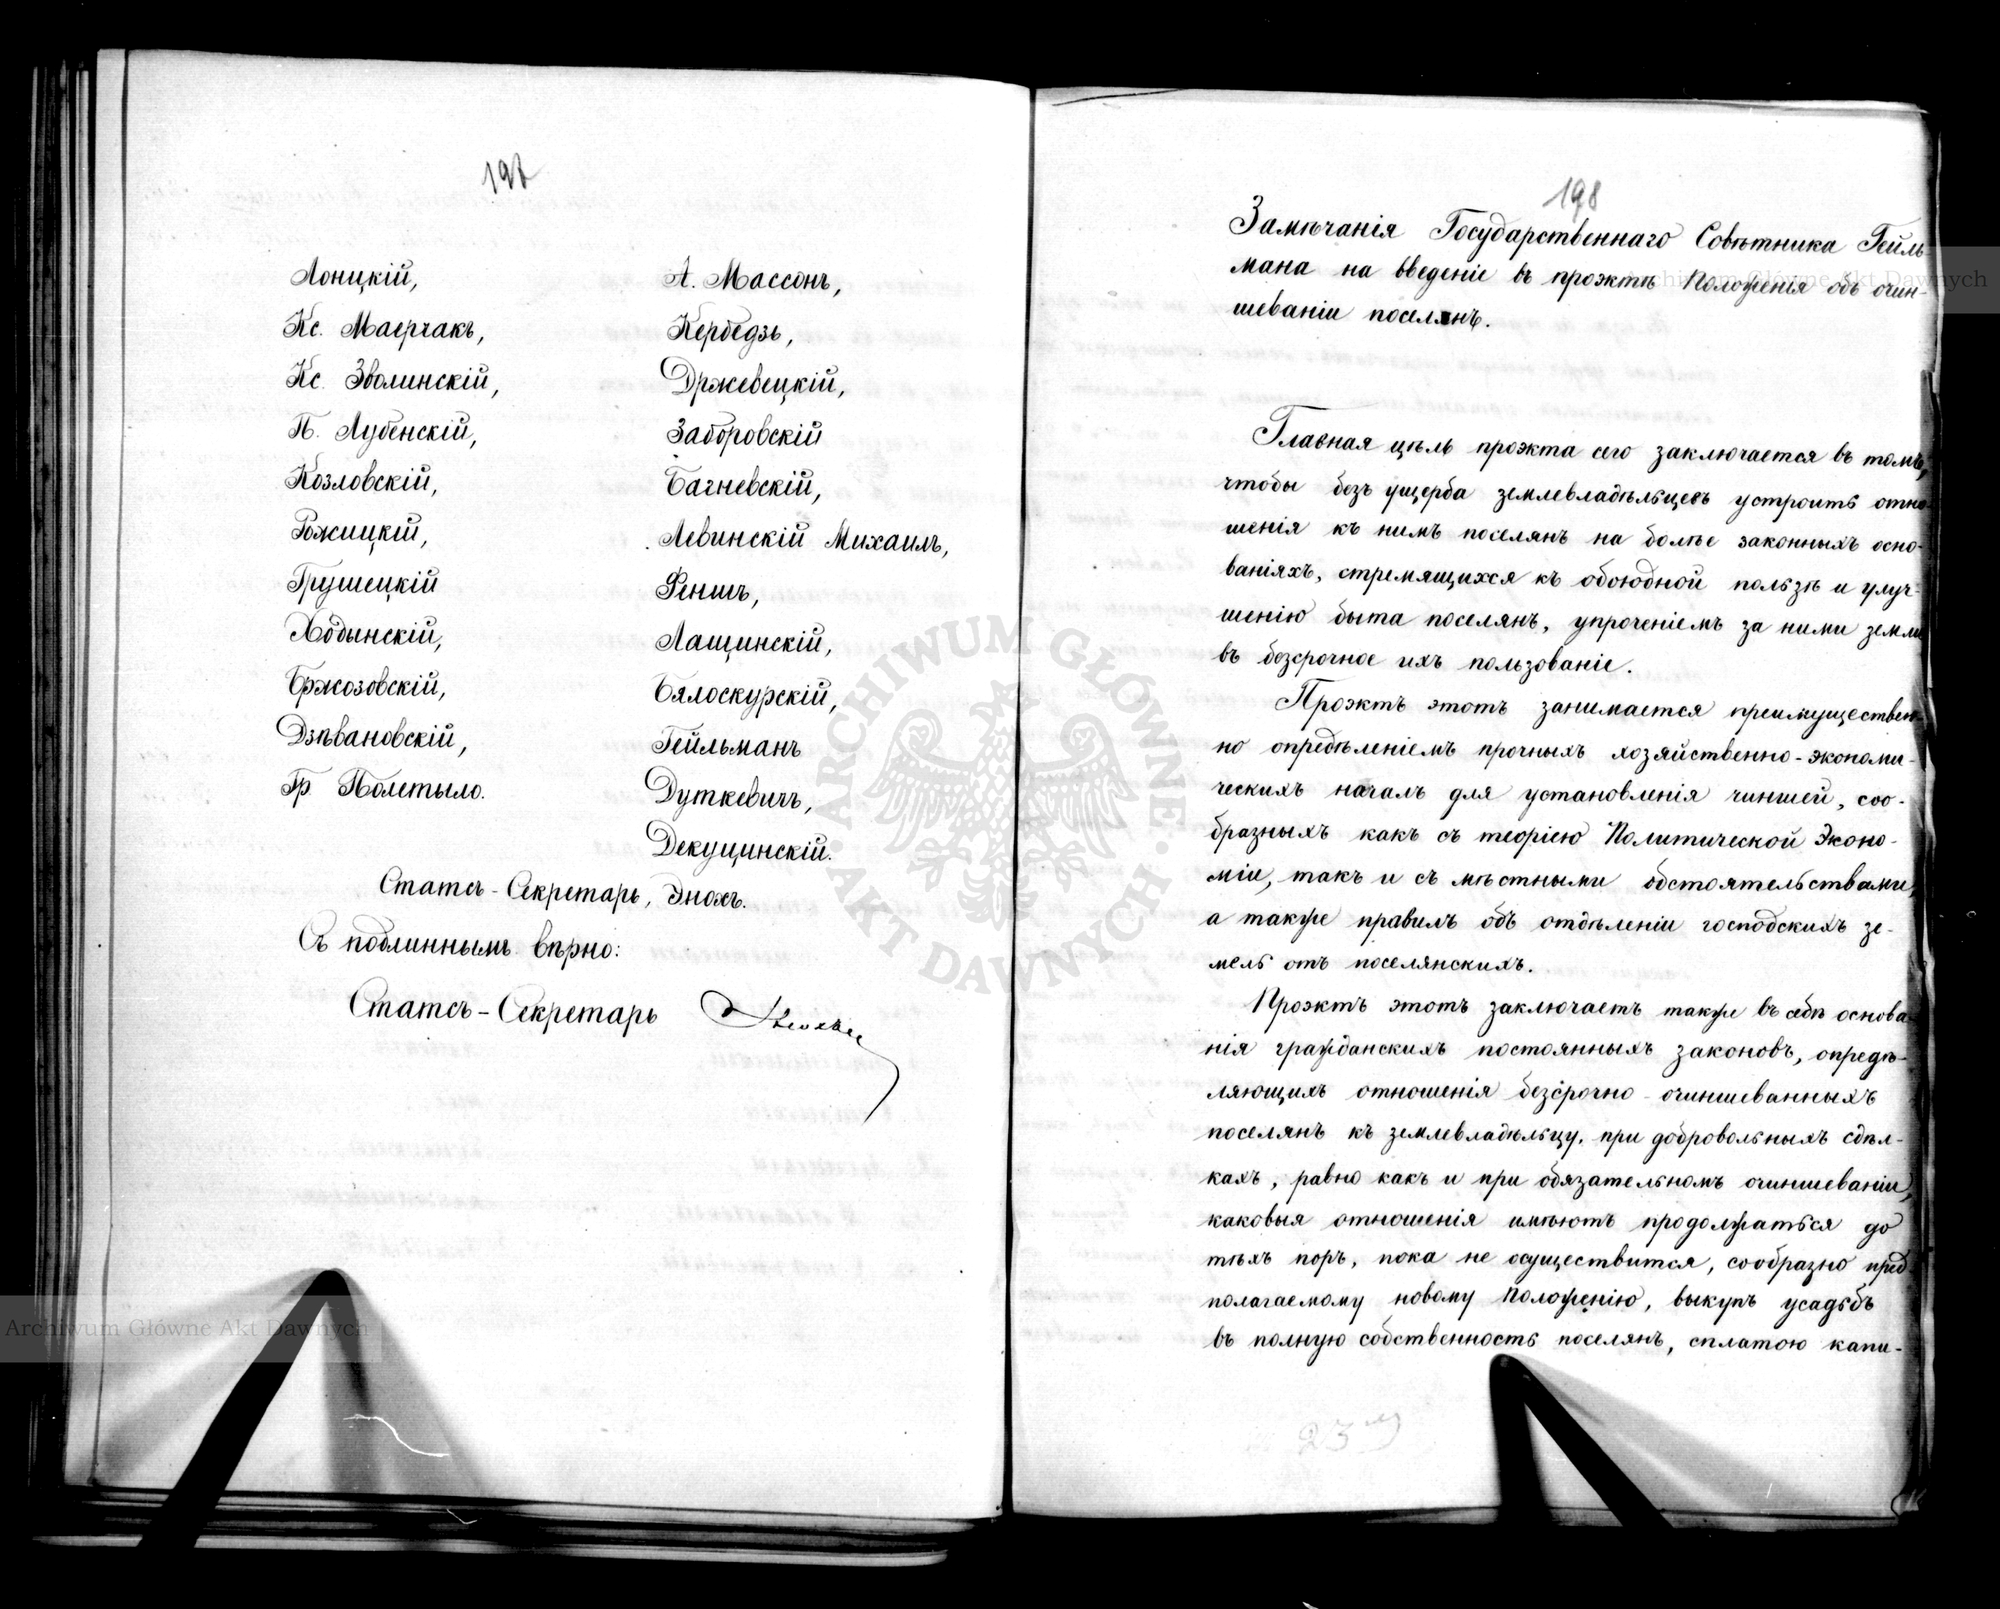 197
Лонцкій,
Кс. Маерчакъ,
Кс. Зволинскій,
П. Лубенскій,
Козловскій,
Рожицкій,
Грушецкій
Ходынскій,
Бржозовскій,
Дзѣвановскій,
Гр. Полетыло.
А. Массонъ,
Кербедзь,
Држевецкій,
Заборовскій
Багневскій,
Левинскій Михаилъ,
Феншъ,
Лащинскій,
Бялоскурскій,
Гейльманъ
Дуткевичъ,
Декуцинскій.
Статсъ-Секретарь, Энохъ.
Съ подлиннымъ вѣрно:
Статсъ-Секретарь
198
Замѣчанія Государственнаго Совѣтника Гейль
мана на введеніе въ проэктѣ Положенія объ очин-
шеваніи поселянъ.
Главная цѣль проэкта сего заключается въ томъ,
чтобы безъ ущерба землевладѣльцевъ устроить отно
шенія къ нимъ поселянъ на болѣе законныхъ осно-
ваніяхъ, стремящихся къ обоюдной пользѣ и улуч-
шенію быта поселянъ, упроченіемъ за ними земли
въ безсрочное ихъ пользованіе.
Проэктъ этотъ занимается преимуществен-
но опредѣленіемъ прочныхъ хозяйственно-экономи-
ческихъ началъ для установленія чиншей, соо-
бразныхъ какъ съ теоріею Политической Эконо-
міи, такъ и съ мѣстными обстоятельствами,
а также правилъ объ отдѣленіи господскихъ зе-
мель отъ поселянскихъ.
Проэктъ этотъ заключаетъ также въ себѣ основа-
нія гражданскихъ постоянныхъ законовъ, опредѣ-
ляющихъ отношенія безсрочно-очиншеванныхъ
поселянъ къ землевладѣльцу, при добровольныхъ сдѣл-
кахъ, равно какъ и при обязательномъ очиншеваніи,
каковыя отношенія имѣютъ продолжаться до
тѣхъ поръ, пока не осуществится, сообразно пред-
полагаемому новому Положенію, выкупъ усадьбъ
въ полную собственность поселянъ, сплатою капи-
23
ARCHIWUM GŁÓWNE AKT DAWNYCH
Archiwum Główne Akt Dawnych
Archiwum Główne Akt Dawnych